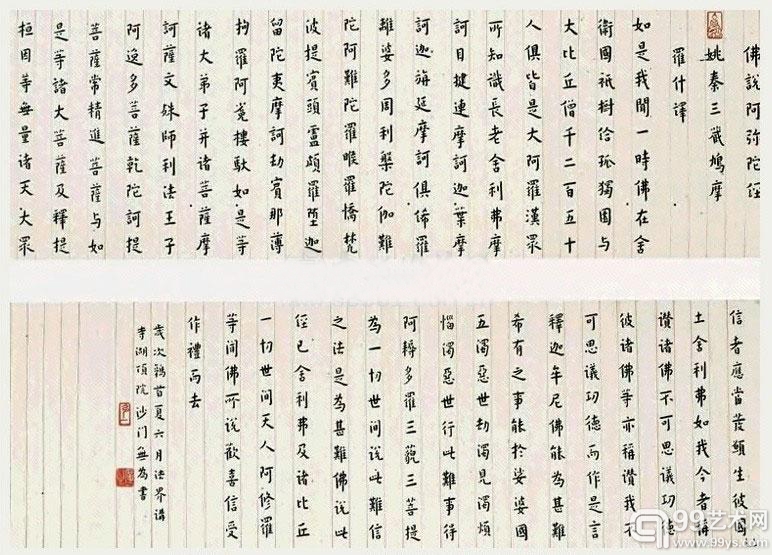 佛說阿弥陀經
姚秦三藏鳩摩
羅什譯
如是我聞一時佛在舍
衛國祇樹給孤獨園与
大比丘僧千二百五十
人俱皆是大阿羅漢眾
所知識長老舍利弗摩
訶目揵連摩訶迦葉摩
訶迦旃延摩訶俱絺羅
離婆多周利槃陀伽難
陀阿難陀羅睺羅憍梵
波提賓頭盧頗羅墮迦
留陀夷摩訶劫賓那薄
拘羅阿㝹樓馱如是等
諸大弟子并諸菩薩摩
訶薩文殊師利法王子
阿逸多菩薩乾陀訶提
菩薩常精進菩薩与如
是等諸大菩薩及釋提
桓因等無量諸天大眾
信者應當發願生彼國
土舍利弗如我今者稱
讚諸佛不可思議功德
彼諸佛等亦稱讚我不
可思議功德而作是言
釋迦牟尼佛能為甚難
希有之事能於娑婆國
五濁惡世劫濁見濁煩
惱濁惡世行此難事得
阿耨多羅三藐三菩提
為一切世间說此難信
之法是為甚難佛說此
經已舍利弗及諸比丘
一切世间天人阿修羅
等闻佛所說歡喜信受
作禮而去
歲次鶉首夏六月法界講
寺湖頂院沙门無為書
99艺术网
www.99ys.com